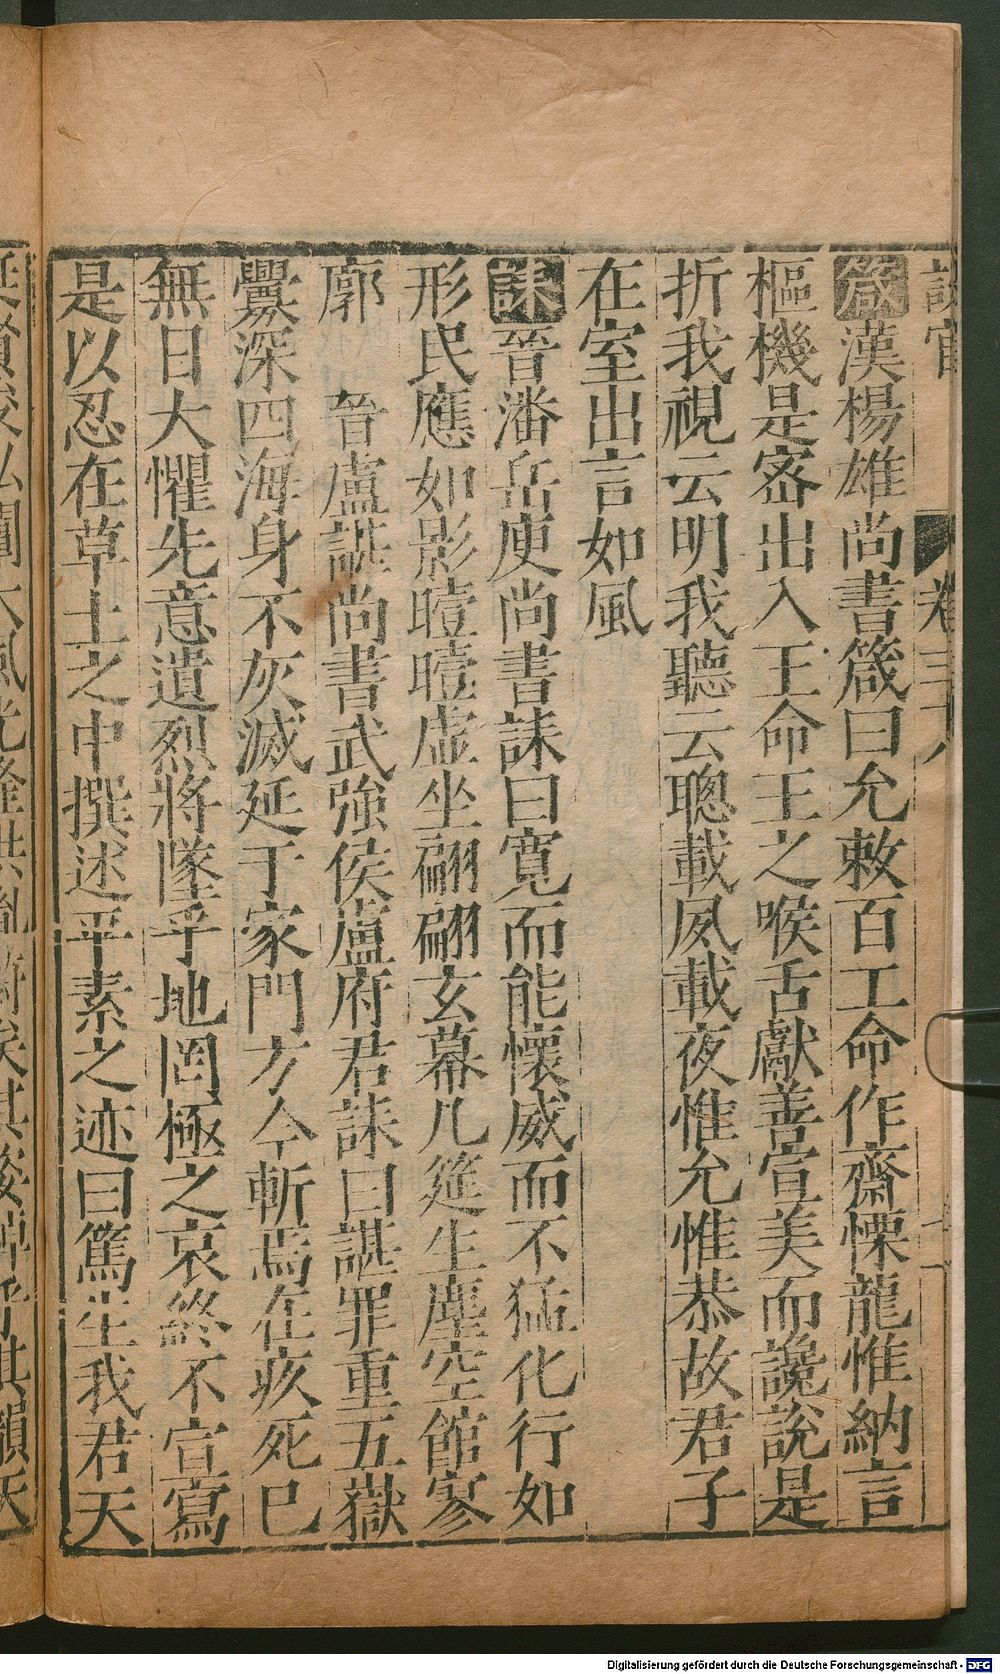 卷三十八
箴漢楊雄尚書箴曰允敕百工命作齋慄龍惟納言
樞機是宻出入王命王之喉舌獻善宣美而讒說是
折我視云明我聽云聰載夙載夜惟允惟恭故君子
在室出言如風
誄晉潘岳庾尚書誄曰寬而能懷威而不猛化行如
形民應如影曀曀虛坐翩翩玄幕几筵生塵空館寥
廓　晉盧諶尚書武強侯盧府君誄曰諶罪重五嶽
釁深四海身不灰滅延于家門方今斬焉在疚死已
無日大懼先意遺烈將墜乎地罔極之哀終不宣寫
是以忍在草土之中撰述平素之迹曰篤生我君天
Digitalisierung gefördert durch die Deutsche Forschungsgemeinschaft - DFG